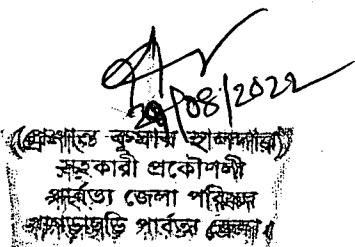 ২০/08/2022
(প্রশান্ত কুমার হালদার)
সহকারী প্রকৌশলী
পার্বত্য জেলা পরিষদ
খাগড়াছড়ি পার্বত্য জেলা।